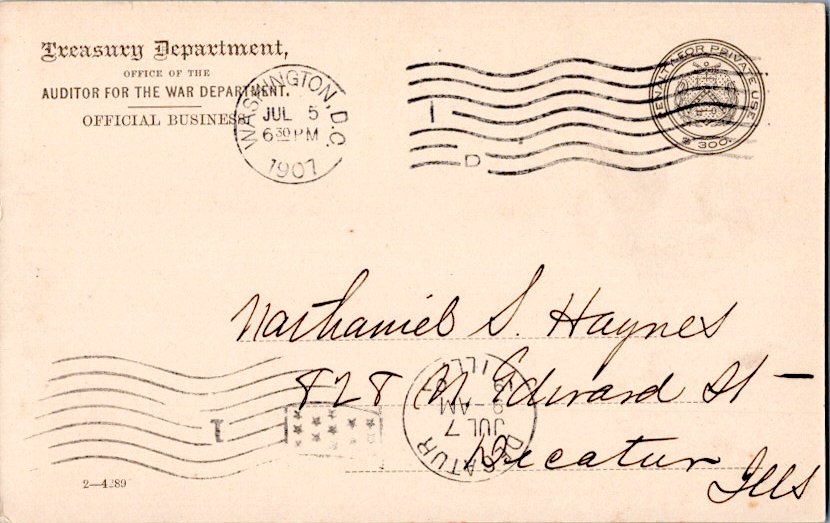 Treasury Department,
OFFICE OF THE
AUDITOR FOR THE WAR DEPARTMENT.
OFFICIAL BUSINESS.
WASHINGTON, D.C.
JUL 5
6 30 PM
1907
I
D
PENALTY FOR PRIVATE USE
$ 300.
Nathaniel S. Haynes
828 N Edward St –
Decatur
Ills
DECATUR
JUL 7
AM
ILL
T